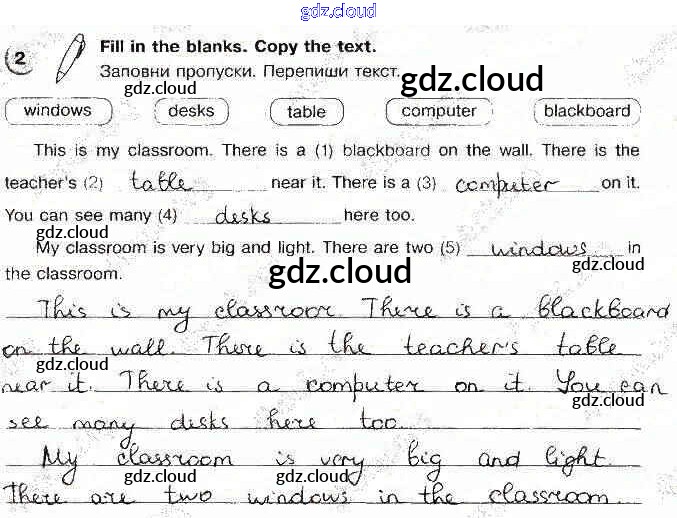 gdz.cloud
2 Fill in the blanks. Copy the text.
Заповни пропуски. Перепиши текст.
gdz.cloud
windows desks table computer blackboard
This is my classroom. There is a (1) blackboard on the wall. There is the
teacher's (2) table near it. There is a (3) computer on it.
You can see many (4) desks here too.
gdz.cloud
My classroom is very big and light. There are two (5) windows in
gdz.cloud
the classroom.
gdz.cloud
This is my classroor. There is a blackboard
on the wall. There is the teacher's table
gdz.cloud
near it. There is a computer on it. You can
gdz.cloud
see many disks here too.
My classroom is very big and light.
gdz.cloud gdz.cloud
There are two windows in the classroom.